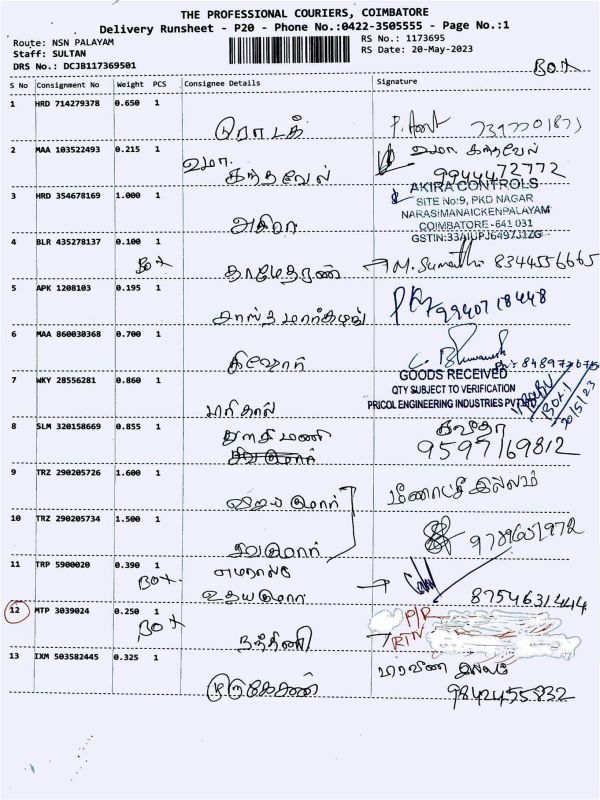 THE PROFESSIONAL COURIERS, COIMBATORE
Delivery Runsheet - P20 - Phone No.:0422-3505555 - Page No.:1
Route: NSN PALAYAM
RS No.: 1173695
Staff: SULTAN
RS Date: 20-May-2023
DRS No.: DCJB117369501
BOX
S No Consignment No Weight PCS Consignee Details Signature
1 HRD 714279378 0.650 1
2 MAA 103522493 0.215 1
உமா.
உமா. கந்தவேல்
கந்தவேல்
9944472772
3 HRD 354678169 1.000 1
AKIRA CONTROLS
SITE No:9, PKD NAGAR
NARASIMANAICKENPALAYAM
COIMBATORE-641 031
GSTIN:33AIUPJ6497J1ZG
அகிரா
4 BLR 435278137 0.100 1
BOX
தாமோதரன் → M. Sumathi 8344556665
5 APK 1208103 0.195 1
9940718448
6 MAA 860030368 0.700 1
கிஷோர்
GOODS RECEIVED
7 WKY 28556281 0.860 1
QTY SUBJECT TO VERIFICATION
PRICOL ENGINEERING INDUSTRIES PVT
BOX-1
20/5/23
8 SLM 320158669 0.855 1
கவிதா
துளசிமணி
9597169812
9 TRZ 290205726 1.600 1
விஜயகுமார்
மீனாட்சி இல்லம்
10 TRZ 290205734 1.500 1
சிவகுமார்
9789651972
11 TRP 5900020 0.390 1
BOX
உதயகுமார் →
8754631444
12 MTP 3039024 0.250 1
BOX
P/R
RTN
நந்தினி →
13 IXM 503582445 0.325 1
முருகேசன்
இல்லம்
9842455832